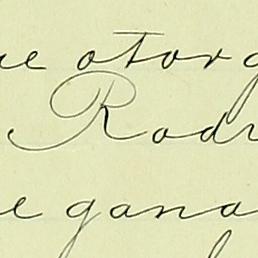 ue otorg
Rodr
e gana